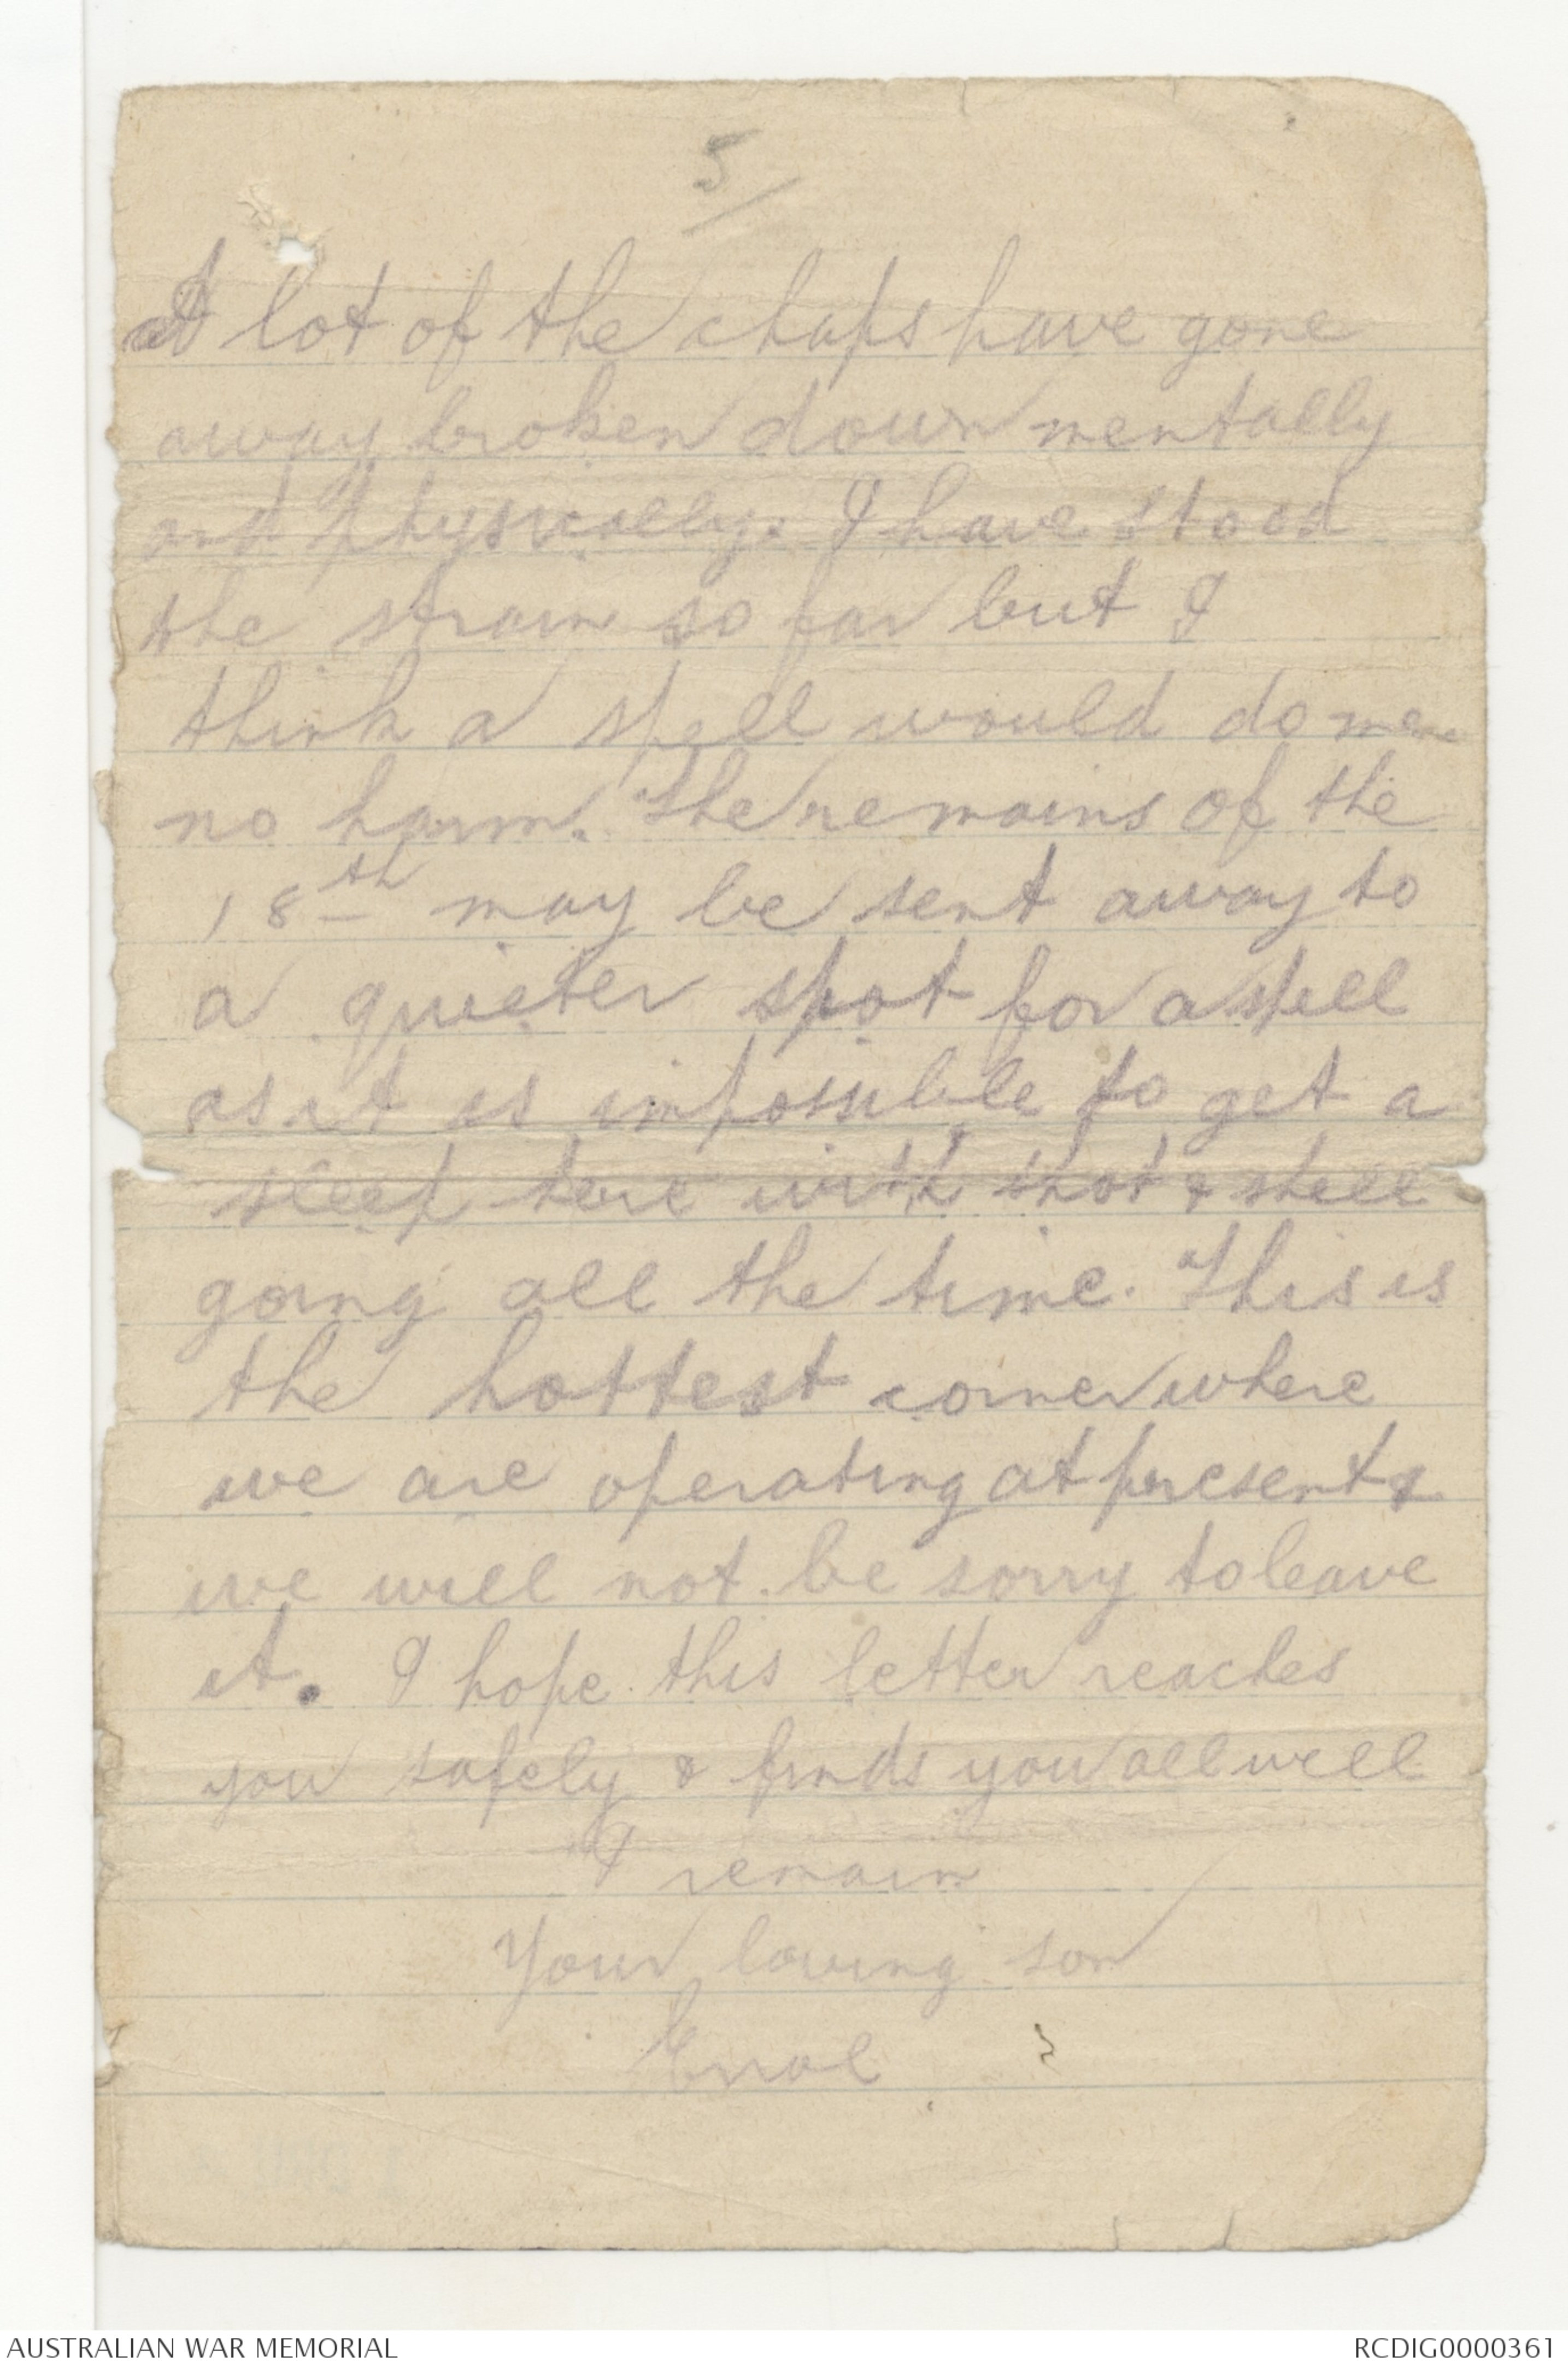 5/
A lot of the chaps have gone
away broken down mentally
and physically. I have stood
the strain so far but I
think a spell would do me
no harm. The remains of the
18th may be sent away to
a quieter spot for a spell
as it is impossible to get a
sleep here with shot & shell
going all the time. This is
the hottest corner where
we are operating at present &
we will not be sorry to leave
it. I hope this letter reaches
you safely & finds you all well
I remain
Your loving son
Errol
AUSTRALIAN WAR MEMORIAL
RCDIG0000361